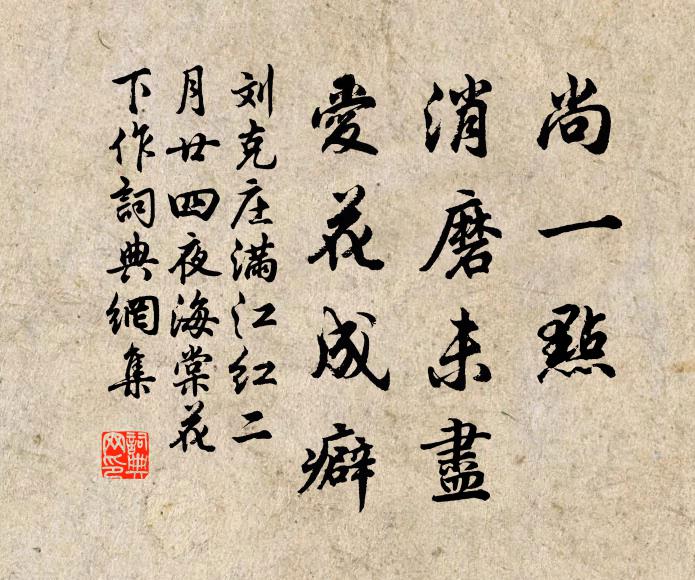 尚一點
消磨未盡
愛花成癖
刘克庄满江红二
月廿四夜海棠花
下作詞典網集
詞典网印